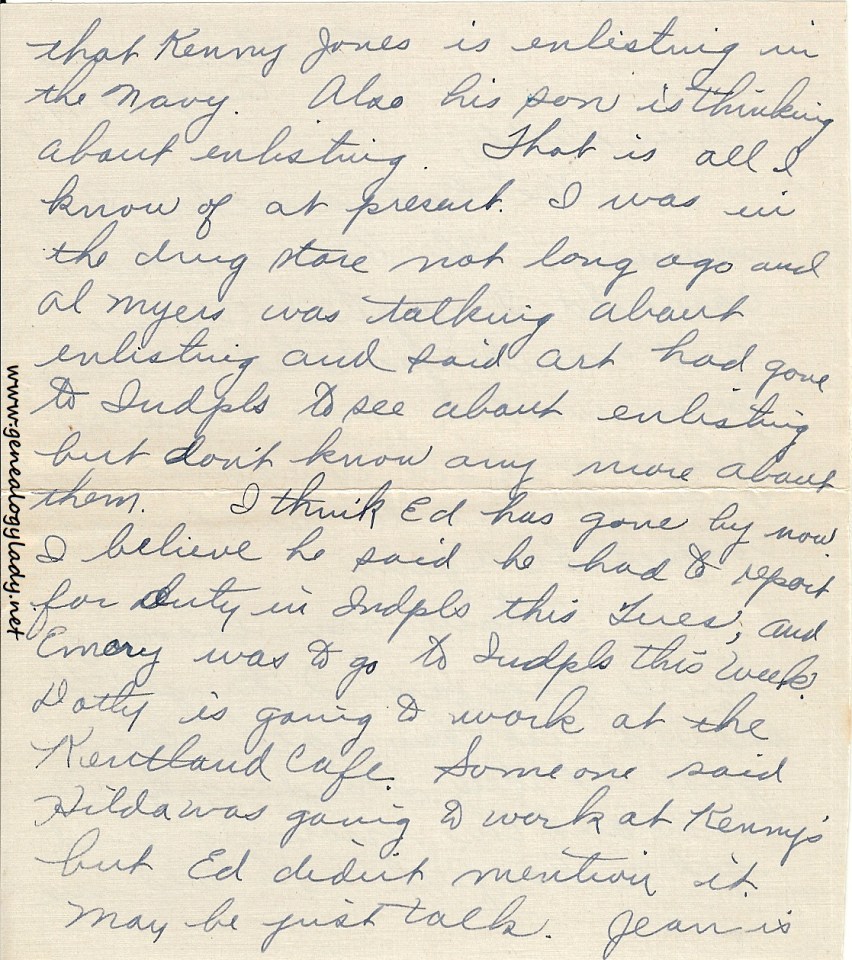 that Kenny Jones is enlisting in
the Navy. Also his son is thinking
about enlisting. That is all I
know of at present. I was in
the drug store not long ago and
Al Myers was talking about
enlisting and said Art had gone
to Indpls to see about enlisting
but don't know any more about
them. I think Ed has gone by now.
I believe he said he had to report
for duty in Indpls this Tues, and
Emory was to go to Indpls this week.
Dotty is going to work at the
Kentland Cafe. Someone said
Hilda was going to work at Kenny's
but Ed didn't mention it.
May be just talk. Jean is
www.genealogylady.net